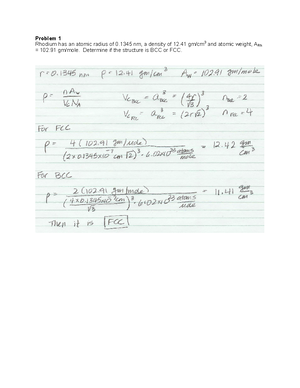 Problem 1
Rhodium has an atomic radius of 0.1345 nm, a density of 12.41 gm/cm³ and atomic weight, A_Rh
= 102.91 gm/mole. Determine if the structure is BCC or FCC.
r = 0.1345 nm ρ = 12.41 gm/cm³ A_w = 102.91 gm/mole
ρ = nA_w / V_c N_A V_c BCC = a³ BCC = (4r/√3)³ n = 2
V_c FCC = a³ FCC = (2r√2)³ n FCC = 4
For FCC
ρ = 4 (102.91 gm/mole) / (2×0.1345×10⁻⁷ cm √2)³ · 6.02×10²³ atoms/mole = 12.42 gm/cm³
For BCC
ρ = 2 (102.91 gm/mole) / (4×0.1345×10⁻⁷ cm/√3)³ · 6.02×10²³ atoms/mole = 11.41 gm/cm³
Then it is FCC